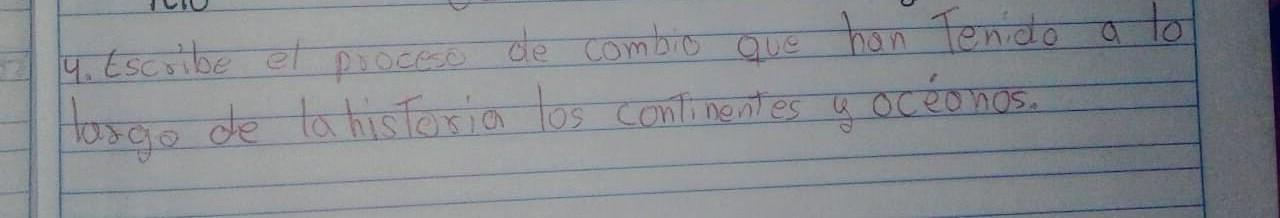 4. Escribe el proceso de cambio que han Tenido a lo
largo de la historia los continentes y océanos.